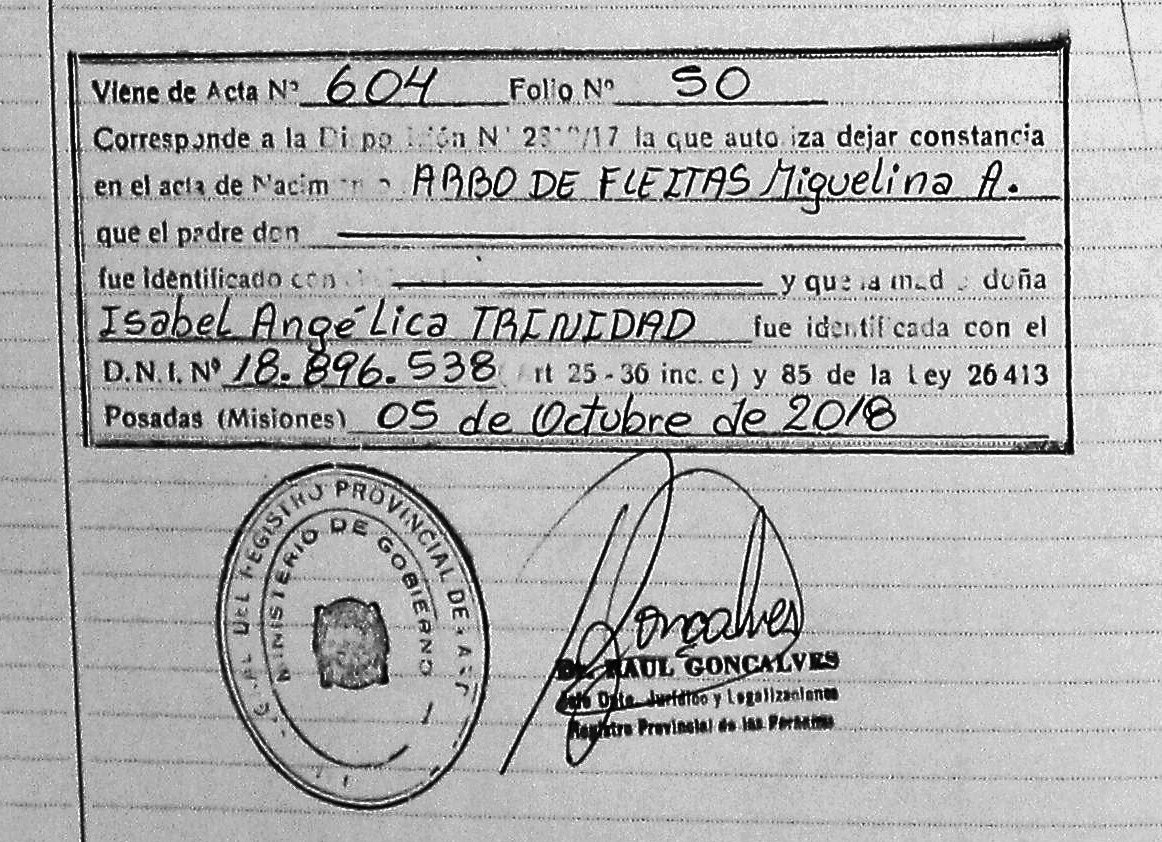 Viene de Acta Nº 604 Folio Nº 50
Corresponde a la la que autoriza dejar constancia
en el acta de Nacimiento ARBO DE FLEITAS Miguelina A.
que el padre don
fue identificado con y que la madre doña
Isabel Angélica TRINIDAD fue identificada con el
D.N.I. Nº 18.896.538 (Art 25 - 36 inc. c) y 85 de la Ley 26413
Posadas (Misiones) 05 de Octubre de 2018
DEL REGISTRO PROVINCIAL DE LAS
MINISTERIO DE GOBIERNO
Goncalves
Dr. RAUL GONCALVES
Jefe Dpto. Jurídico y Legalizaciones
Registro Provincial de las Personas